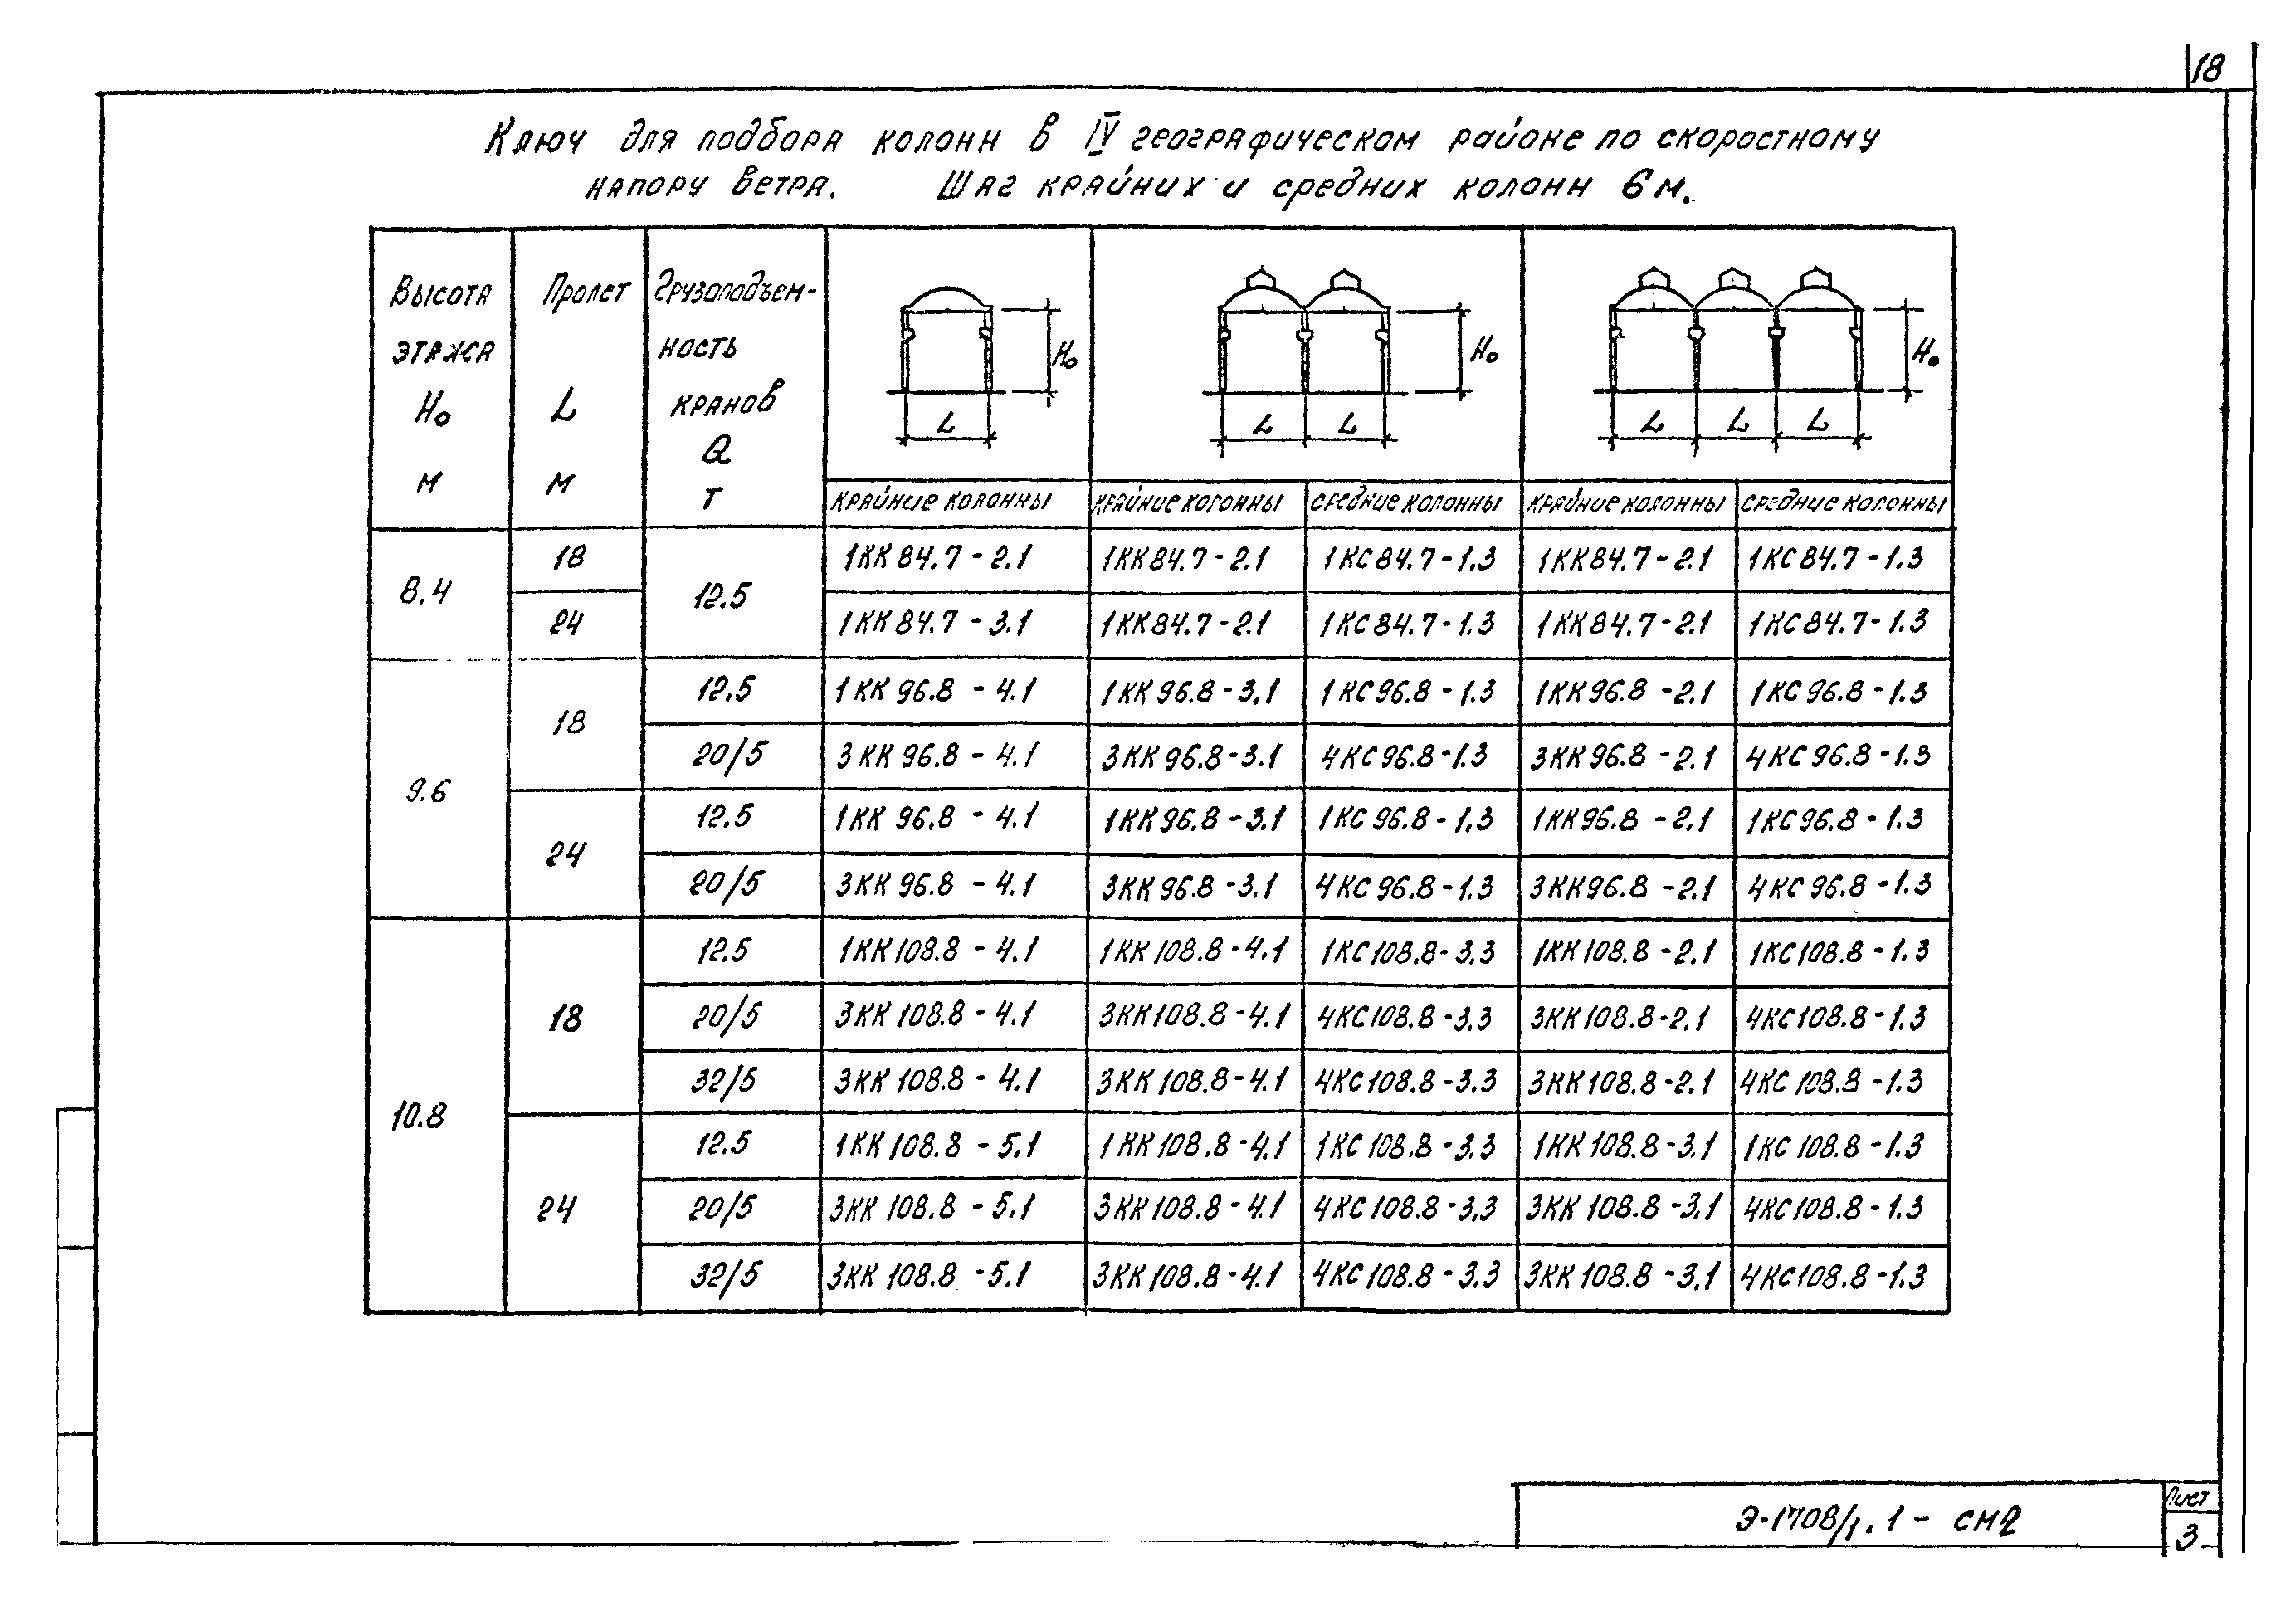 18
Ключ для подбора колонн в IV географическом районе по скоростному
напору ветра. Шаг крайних и средних колонн 6м.
Высота этажа Но м
Пролет L м
Грузоподъем-ность кранов Q т
Но
L
Но
L L
Но
L L L
крайние колонны крайние колонны средние колонны крайние колонны средние колонны
8.4 18 12.5 1КК84.7-2.1 1КК84.7-2.1 1КС84.7-1.3 1КК84.7-2.1 1КС84.7-1.3
24 1КК84.7-3.1 1КК84.7-2.1 1КС84.7-1.3 1КК84.7-2.1 1КС84.7-1.3
9.6 18 12.5 1КК96.8-4.1 1КК96.8-3.1 1КС96.8-1.3 1КК96.8-2.1 1КС96.8-1.3
20/5 3КК96.8-4.1 3КК96.8-3.1 4КС96.8-1.3 3КК96.8-2.1 4КС96.8-1.3
24 12.5 1КК96.8-4.1 1КК96.8-3.1 1КС96.8-1.3 1КК96.8-2.1 1КС96.8-1.3
20/5 3КК96.8-4.1 3КК96.8-3.1 4КС96.8-1.3 3КК96.8-2.1 4КС96.8-1.3
10.8 18 12.5 1КК108.8-4.1 1КК108.8-4.1 1КС108.8-3.3 1КК108.8-2.1 1КС108.8-1.3
20/5 3КК108.8-4.1 3КК108.8-4.1 4КС108.8-3.3 3КК108.8-2.1 4КС108.8-1.3
32/5 3КК108.8-4.1 3КК108.8-4.1 4КС108.8-3.3 3КК108.8-2.1 4КС108.8-1.3
24 12.5 1КК108.8-5.1 1КК108.8-4.1 1КС108.8-3.3 1КК108.8-3.1 1КС108.8-1.3
20/5 3КК108.8-5.1 3КК108.8-4.1 4КС108.8-3.3 3КК108.8-3.1 4КС108.8-1.3
32/5 3КК108.8-5.1 3КК108.8-4.1 4КС108.8-3.3 3КК108.8-3.1 4КС108.8-1.3
Э-1708/1.1- СМ2
Лист
3